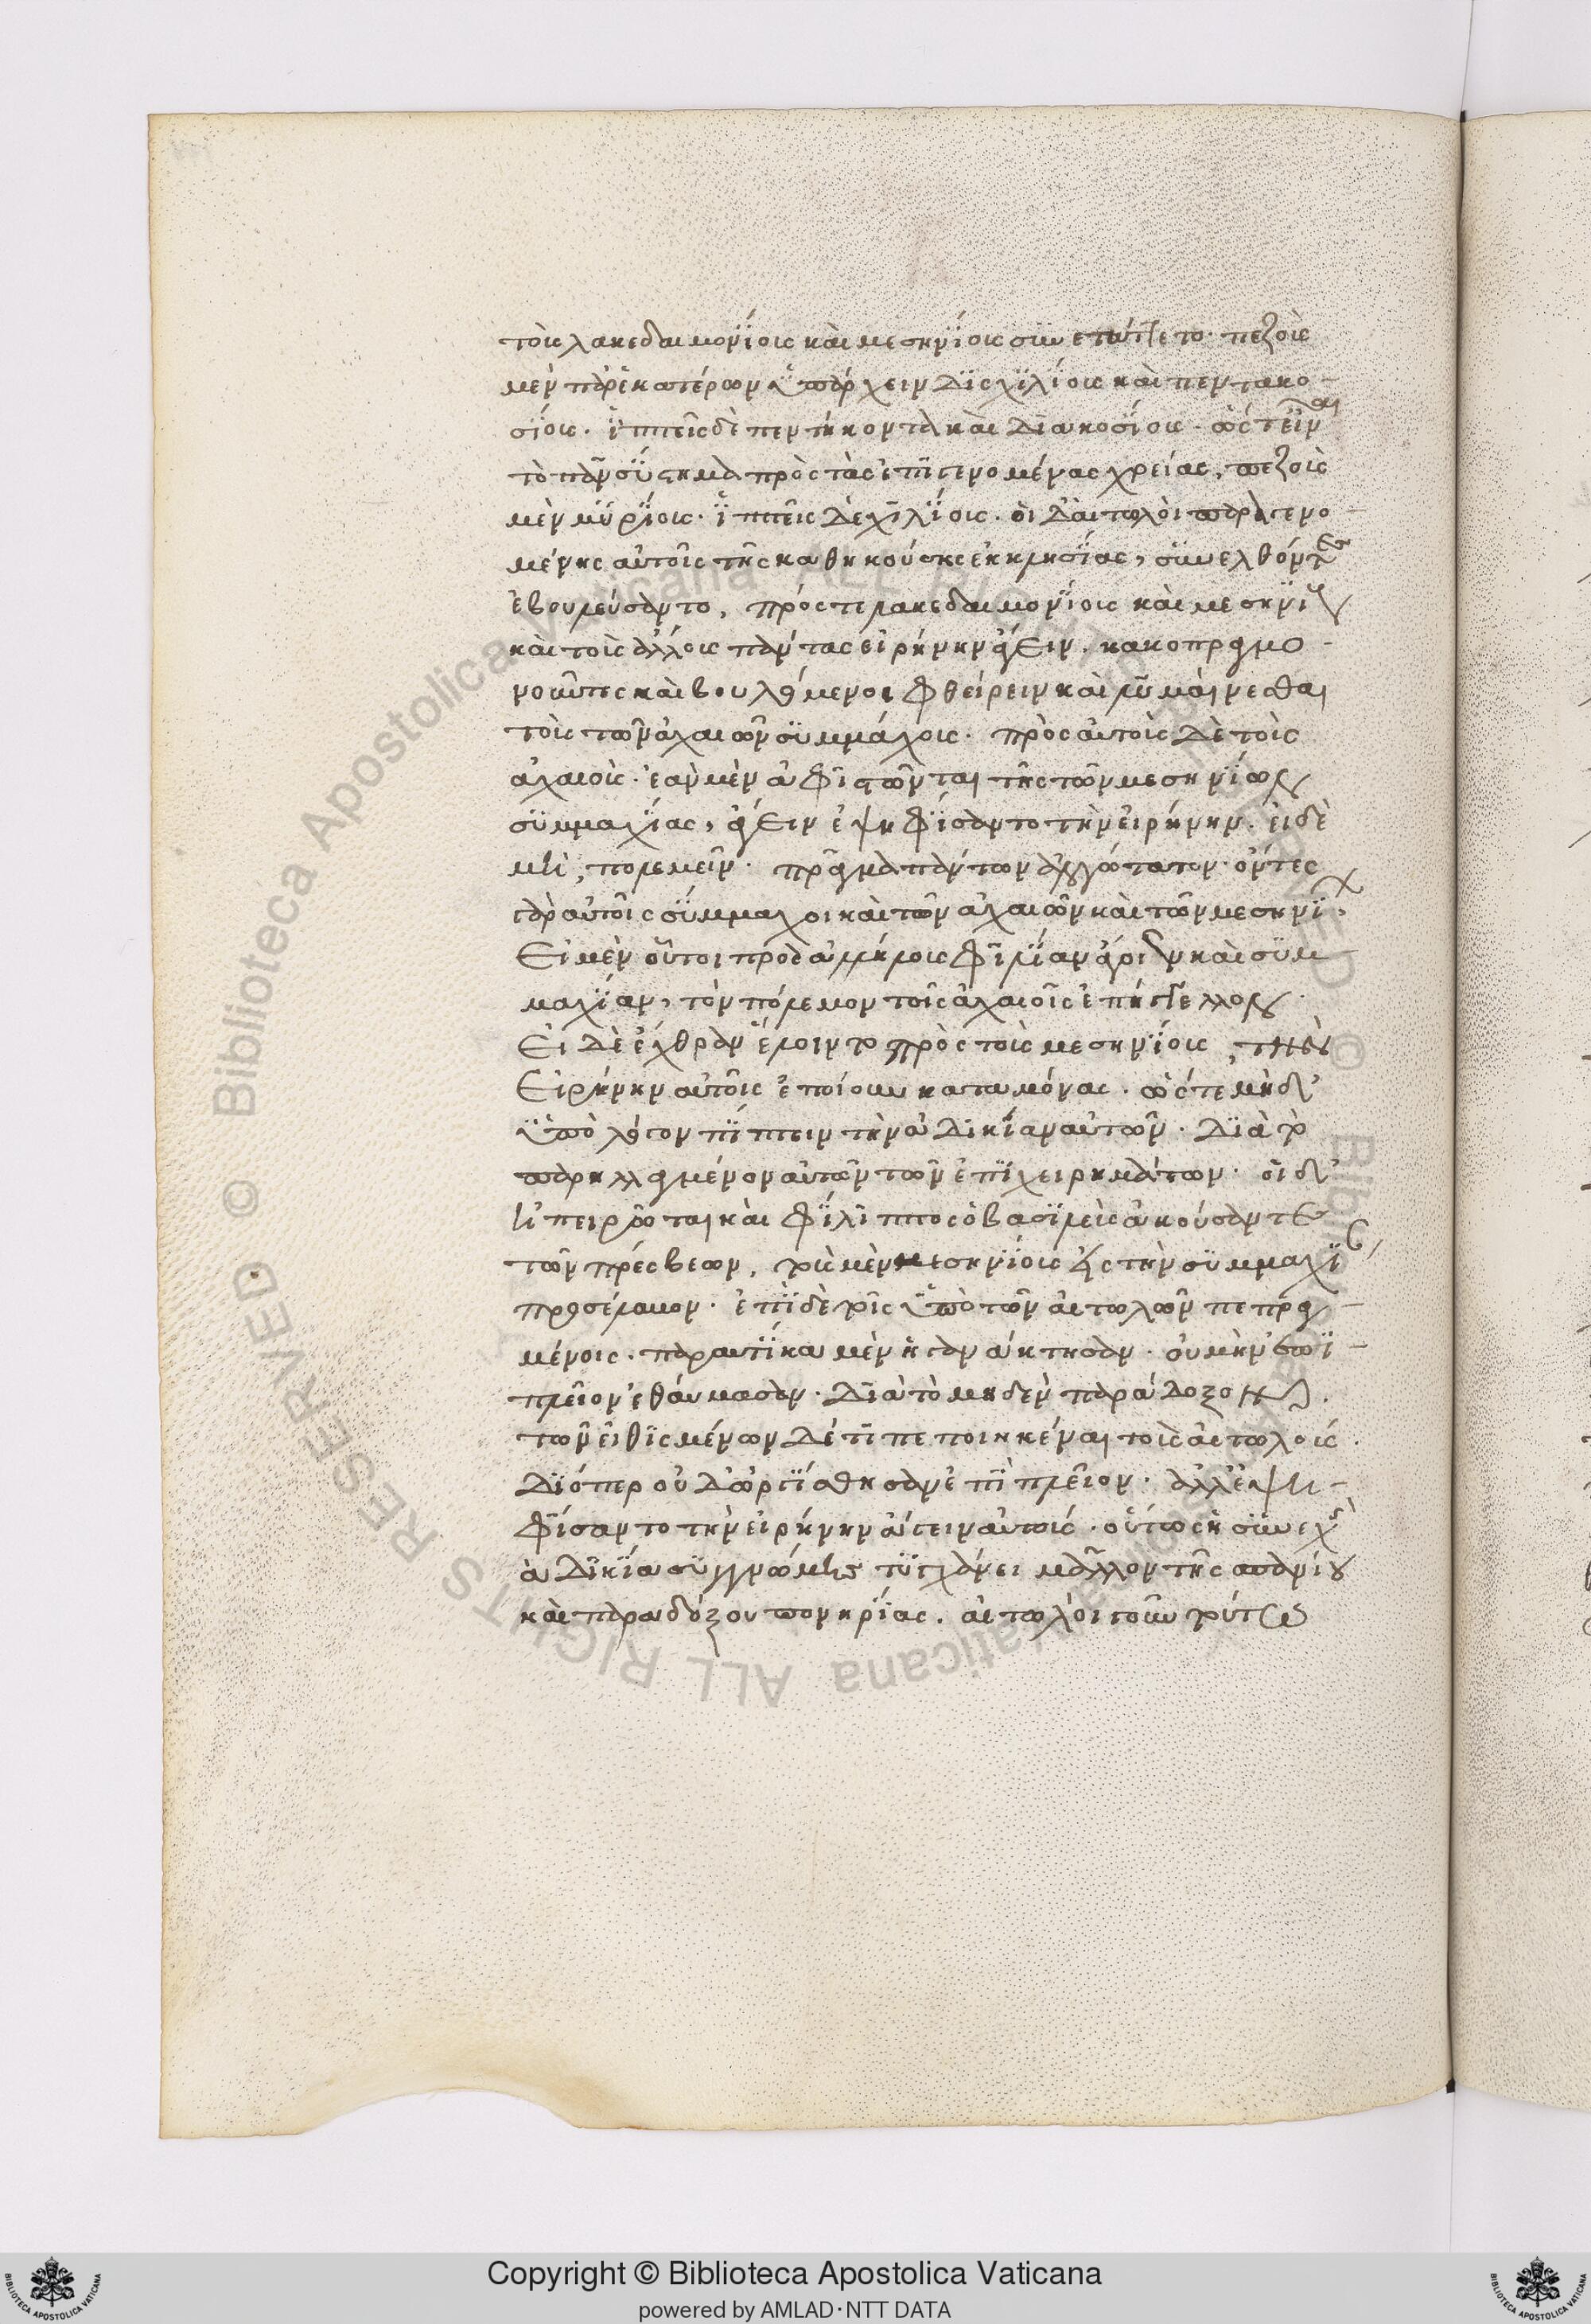 τοῖς λακεδαιμονίοις καὶ μεσηνίοις συνετάττετο· πεζοὺς
μὲν παρ' ἑκατέρων ὑπάρχειν δισχιλίους καὶ πεντακο-
σίους. ἱππεῖς δὲ πεντήκοντα καὶ διακοσίους. ὥστ' εἶναι
τὸ πᾶν σύστημα πρὸς τὰς ἐπιγενομένας χρείας, πεζοὺς
μὲν μυρίους· ἱππεῖς δὲ χιλίους. οἱ δ' αἰτωλοὶ παραγενο-
μένης αὐτοῖς τῆς καθηκούσης ἐκκλησίας, συνελθόντες
ἐβουλεύσαντο, πρός τε λακεδαιμονίους καὶ μεσηνίους
καὶ τοὺς ἄλλους πάντας εἰρήνην ἄγειν. κακοπραγμο-
νοῦντες καὶ βουλόμενοι φθείρειν καὶ λυμαίνεσθαι
τοὺς τῶν ἀχαιῶν συμμάχους. πρὸς αὐτοὺς δὲ τοὺς
ἀχαιοὺς. ἐὰν μὲν ἀφιστῶνται τῆς τῶν μεσηνίων
συμμαχίας, ἄγειν ἐψηφίσαντο τὴν εἰρήνην. εἰ δὲ
μὴ, πολεμεῖν. πρᾶγμα πάντων ἀλογώτατον. ὄντες
γὰρ αὐτοῖς σύμμαχοι καὶ τῶν ἀχαιῶν καὶ τῶν μεσηνίων,
εἰ μὲν οὗτοι πρὸς ἀλλήλους φιλίαν ἄγοιεν καὶ συμ-
μαχίαν, τὸν πόλεμον τοῖς ἀχαιοῖς ἐπήγγελλον.
εἰ δὲ ἔχθραν ἕλοιντο πρὸς τοὺς μεσηνίους, τὴν
εἰρήνην αὐτοῖς ἐποίουν καταμόνας. ὥστε μηδ'
ὑπὸ λόγον πίπτειν τὴν ἀδικίαν αὐτῶν. διὰ τὸ
παρηλλαγμένον αὐτῶν τῶν ἐπιχειρημάτων. οἱ δ'
ἠπειρῶται καὶ φίλιππος ὁ βασιλεὺς ἀκούσαντες
τῶν πρέσβεων, τοὺς μὲν μεσηνίους εἰς τὴν συμμαχίαν
προσέλαβον. ἐπὶ δὲ τοῖς ὑπὸ τῶν αἰτωλῶν πεπραγ-
μένοις. παραυτίκα μὲν ἠγανάκτησαν. οὐ μὴν ἐπὶ
πλεῖον ἐθαύμασαν. διὰ τὸ μηδὲν παράδοξον
τῶν εἰθισμένων δέ τι πεποιηκέναι τοὺς αἰτωλούς.
διόπερ οὐδ' ὠργίσθησαν ἐπὶ πλεῖον. ἀλλ' ἐψη-
φίσαντο τὴν εἰρήνην ἄγειν αὐτούς. οὕτως ἡ συνεχὴς
ἀδικία συγγνώμης τυγχάνει μᾶλλον τῆς σπανίου
καὶ παραδόξου πονηρίας. αἰτωλοὶ γοῦν τούτῳ